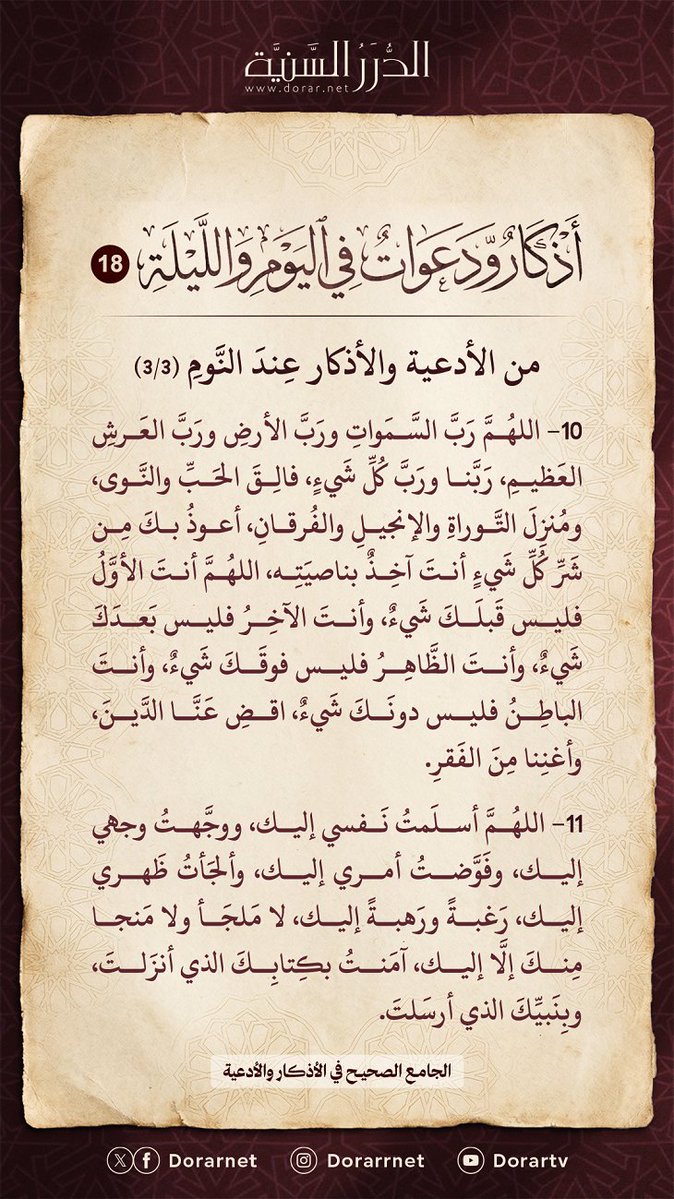 الدُّرَرُ السَّنِيَّة
www.dorar.net
أَذْكَارٌ وَدَعَوَاتٌ فِي اليَوْمِ وَاللَّيْلَةِ 18
من الأدعية والأذكار عِندَ النَّومِ (3/3)
10- اللهُمَّ رَبَّ السَّمَواتِ ورَبَّ الأرضِ ورَبَّ العَرشِ
العَظيمِ، رَبَّنا ورَبَّ كُلِّ شَيءٍ، فالِقَ الحَبِّ والنَّوى،
ومُنزِلَ التَّوراةِ والإنجيلِ والفُرقانِ، أعوذُ بكَ مِن
شَرِّ كُلِّ شَيءٍ أنتَ آخِذٌ بناصيَتِه، اللهُمَّ أنتَ الأوَّلُ
فليس قَبلَكَ شَيءٌ، وأنتَ الآخِرُ فليس بَعدَكَ
شَيءٌ، وأنتَ الظَّاهِرُ فليس فوقَكَ شَيءٌ، وأنتَ
الباطِنُ فليس دونَكَ شَيءٌ، اقضِ عَنَّا الدَّينَ،
وأغنِنا مِنَ الفَقرِ.
11- اللهُمَّ أسلَمتُ نَفسي إليك، ووجَّهتُ وجهي
إليك، وفَوَّضتُ أمري إليك، وألجَأتُ ظَهري
إليك، رَغبةً ورَهبةً إليك، لا مَلجَأ ولا مَنجا
مِنكَ إلَّا إليك، آمَنتُ بكِتابِكَ الذي أنزَلتَ،
وبِنَبيِّكَ الذي أرسَلتَ.
الجامع الصحيح في الأذكار والأدعية
Dorarnet
Dorarrnet
Dorartv